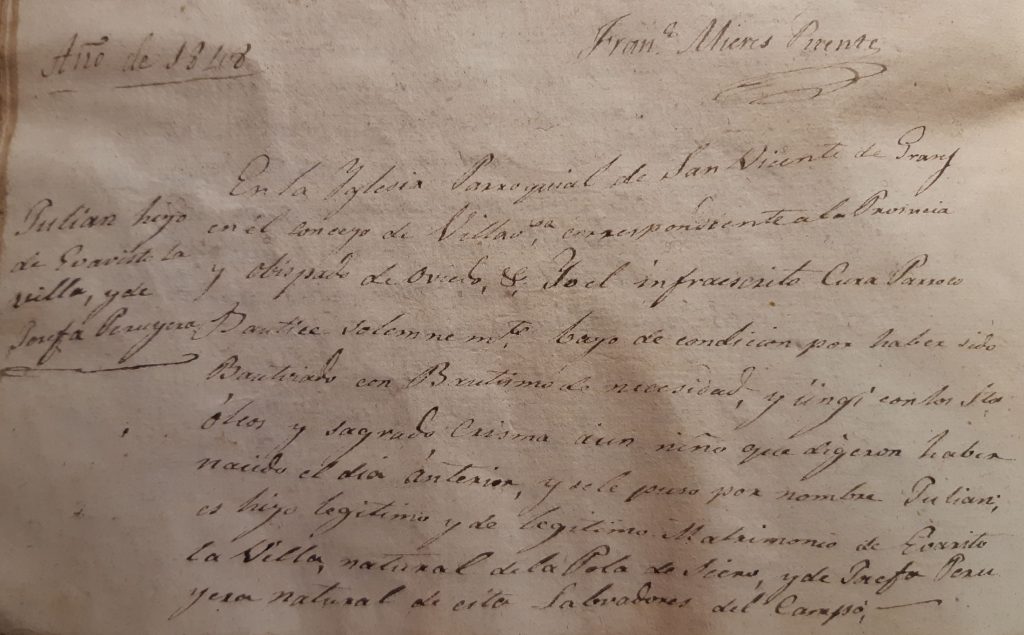 Franco. Mieres Puente
Año de 1848
Julian hijo
de Evaristo la
villa, y de
Josefa Peruyera
En la Yglesia Parroquial de San Vicente de
en el concejo de Villavsa, correspondiente a la Provincia
y obispado de Oviedo, Yo el infraescrito Cura Parroco
Bauticé solemnemte. bajo de condicion por haber sido
Bautizado con Bautismo de necesidad, y üngí con los Stos
óleos y sagrado Crisma á un niño que digeron haber
nacido el dia ánterior, y sele puso por nombre Julian;
es hijo legitimo y de legitimo Matrimonio de Evarito
la Villa, natural de la Pola de Siero, y de Josefa Peru
yera natural de esta Salvadores del Campo,